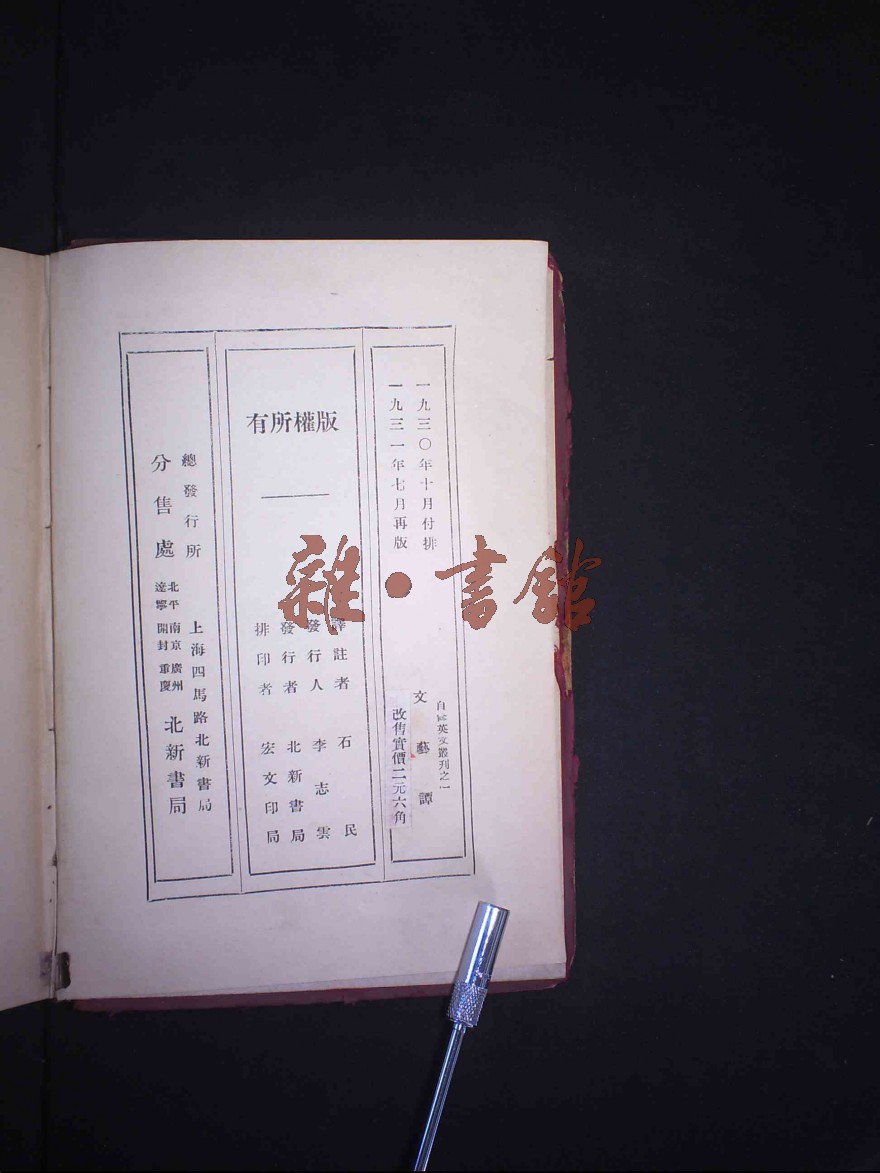 一九三〇年十月付排
一九三一年七月再版
自修英文叢刊之一
文藝譚
改售實價二元六角
版權所有
譯註者 石民
發行人 李志雲
發行者 北新書局
排印者 宏文印局
總發行所 上海四馬路北新書局
分售處 北平 南京 廣州
遼寧 開封 重慶
北新書局
雜·書館